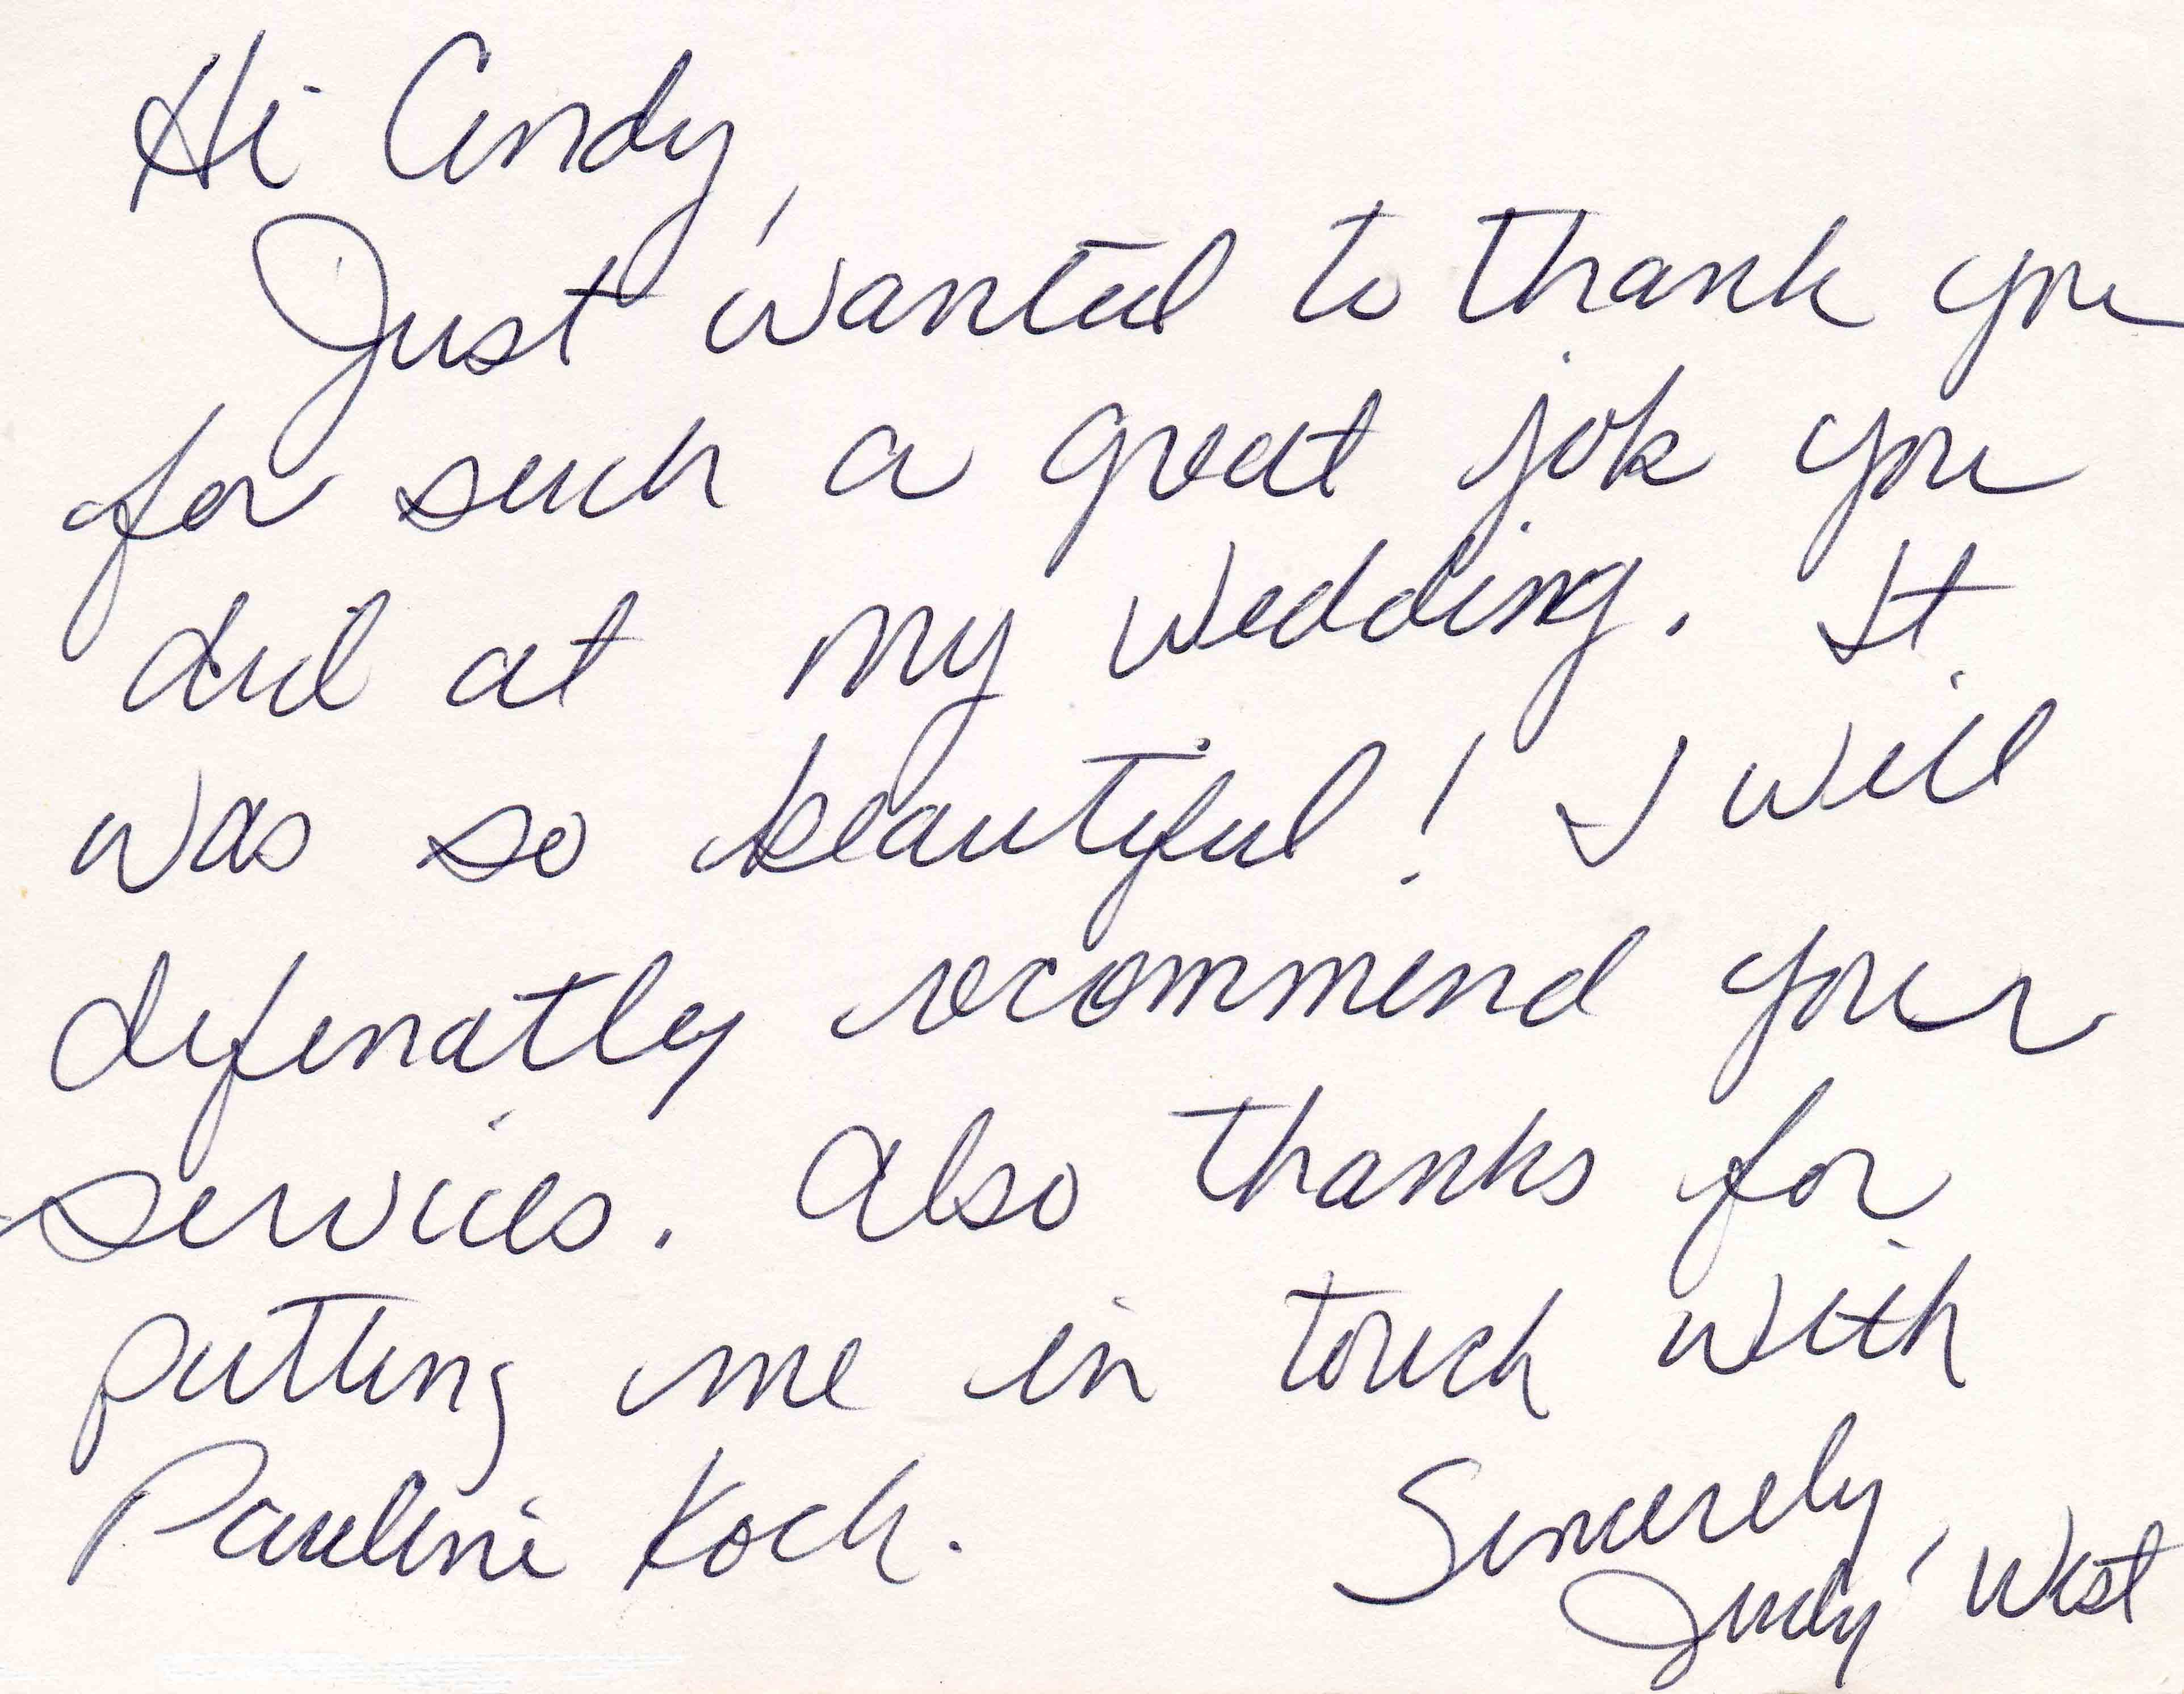 Hi Cindy,
Just wanted to thank you
for such a great job you
did at my wedding. It
was so beautiful! I will
definatly recommend your
services. Also thanks for
putting me in touch with
Pauline Koch.
Sincerely,
Judy West